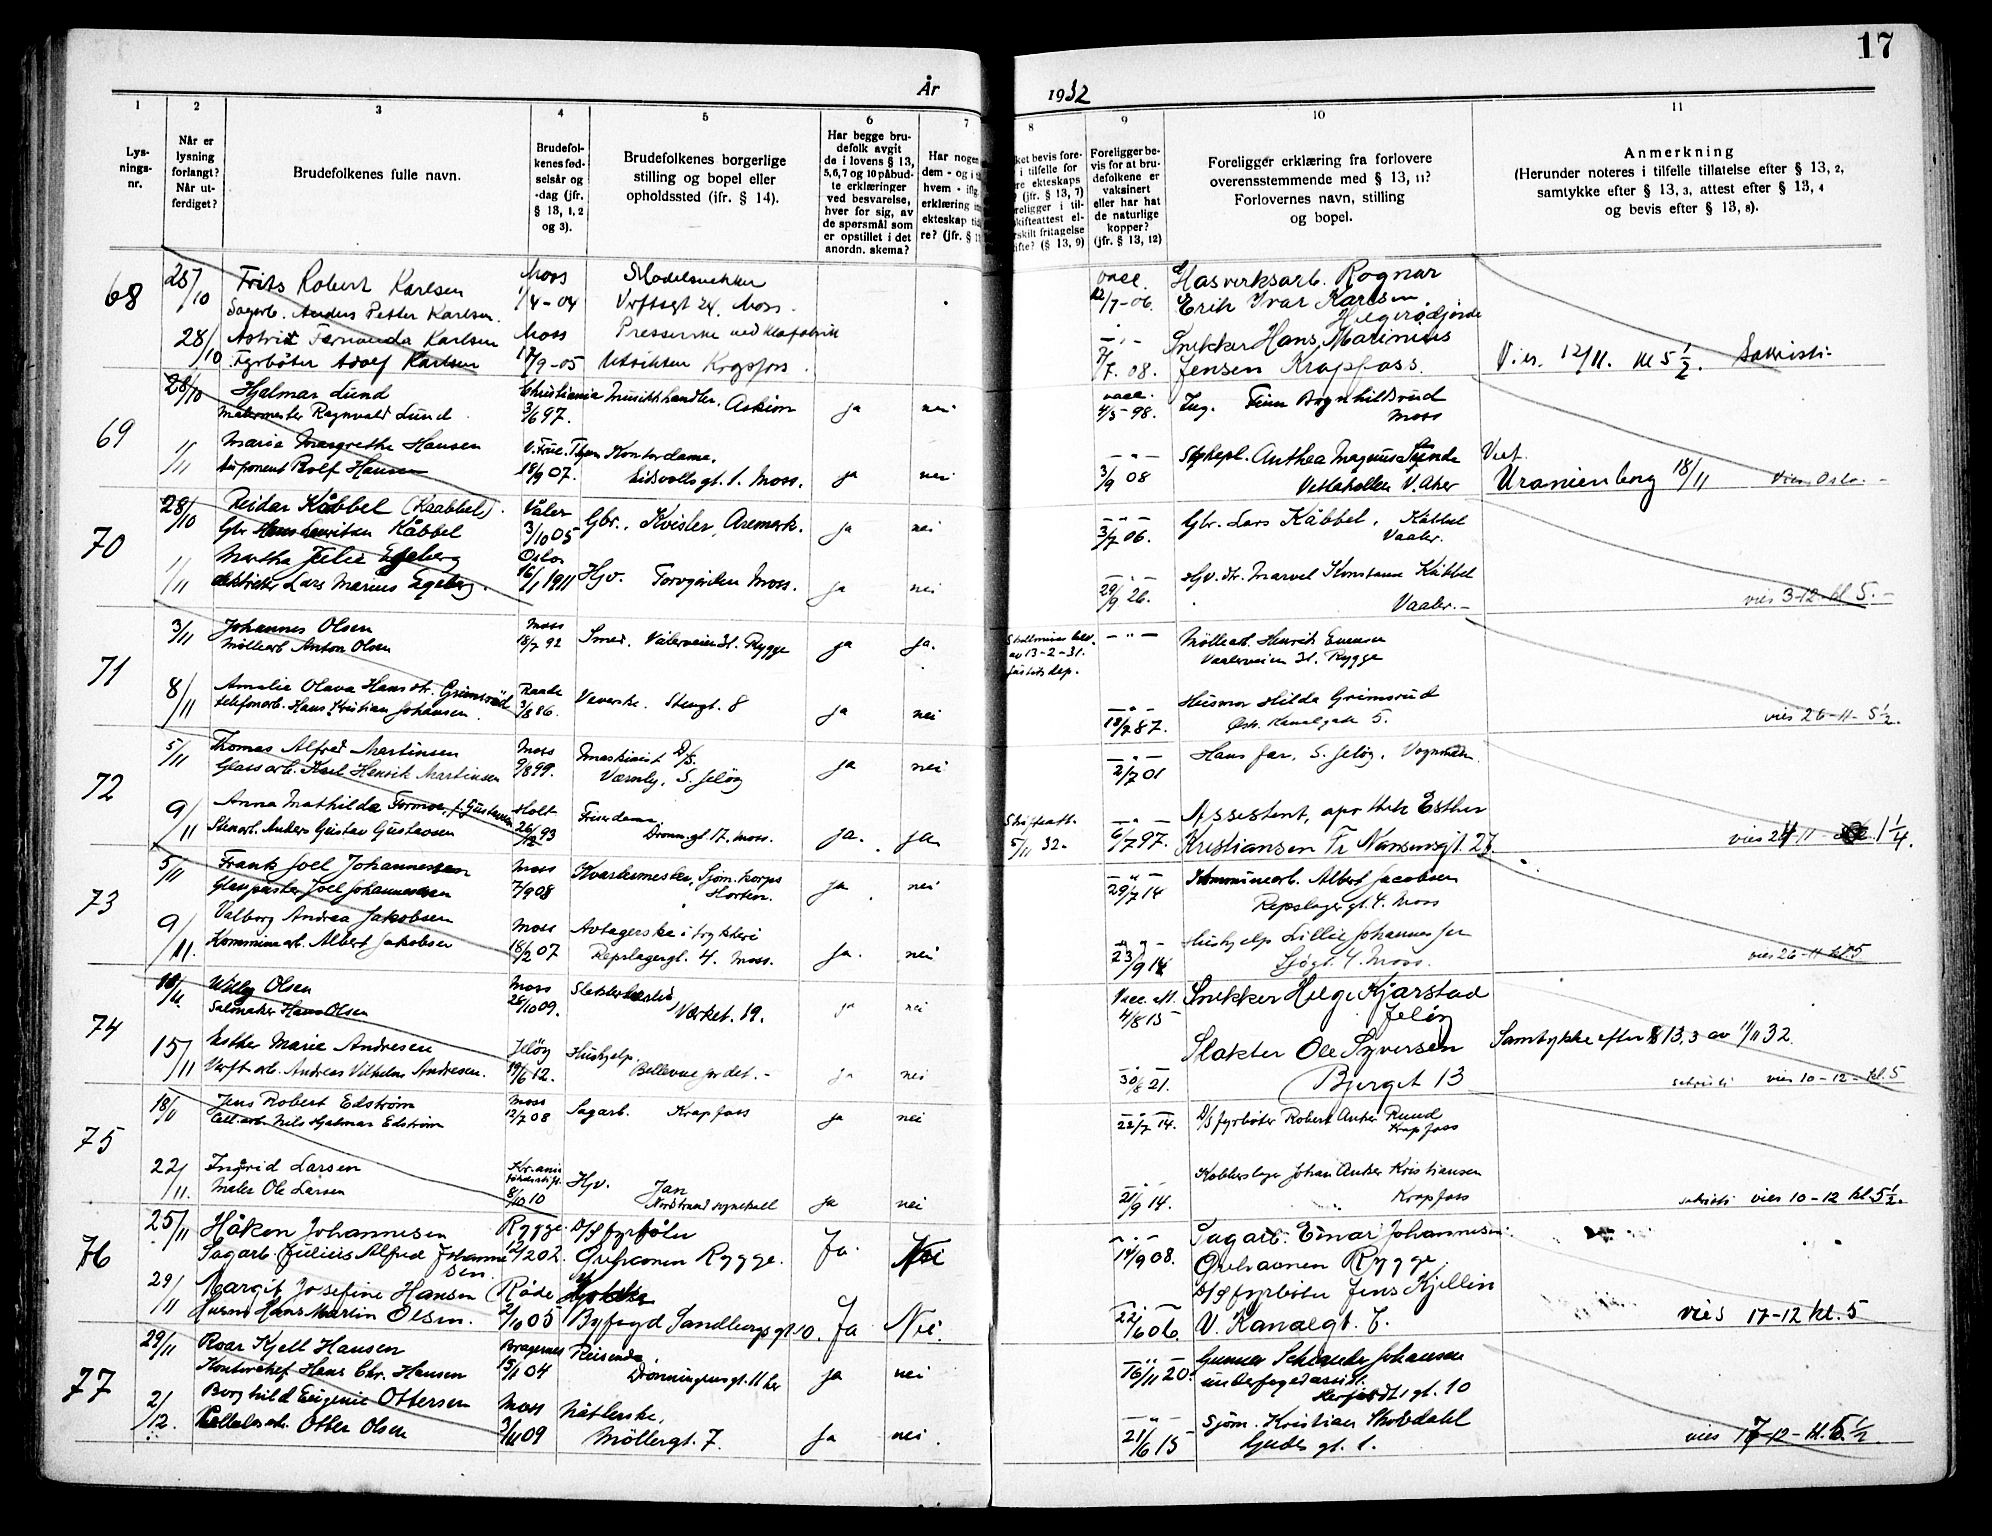 17
År 1932
1 2 3 4 5 6 7 8 9 10 11
Lys-
nings-
nr.
Når er
lysning
forlangt?
Når ut-
ferdiget?
Brudefolkenes fulle navn.
Brudefol-
kenes fød-
selsår og
-dag (jfr.
§ 13, 1, 2
og 3).
Brudefolkenes borgerlige
stilling og bopel eller
opholdssted (jfr. § 14).
Har begge bru-
defolk avgit
de i lovens § 13,
5,6, 7 og 10 påbud-
te erklæringer
ved besvarelse,
hver for sig, av
de spørsmål som
er opstillet i det
anordn. skema?
Har nogen
dem - og i
hvem - iflg.
erklæring
ekteskap tid
re? (jfr. §
ket bevis fore-
i tilfelle for
re ekteskaps
? (jfr. § 13, 7)
religger i til-
skifteattest el-
rskilt fritagelse
ifte? (§ 13, 9)
Foreligger be-
vis for at bru-
defolkene er
vaksinert
eller har hat
de naturlige
kopper?
(jfr. § 13, 12)
Foreligger erklæring fra forlovere
overensstemmende med § 13, 11?
Forlovernes navn, stilling
og bopel.
Anmerkning
(Herunder noteres i tilfelle tillatelse efter § 13, 2,
samtykke efter § 13, 3, attest efter § 13, 4
og bevis efter § 13, 8).
68 28/10 Frits Robert Karlsen Moss vacc. Ragnar
Sagarb. Anders Petter Karlsen 1/4-04 Verftsgt 24 Moss. 12/7-06 Erik Ivar Karlsen.
28/10 Astrid Fernanda Karlsen Moss Snekker Hans Marinius
Fyrbøter Adolf Karlsen 17/9-05 Utsikten Krapfoss. 7/7. 08. Jensen Krapfoss. Vies. 12/11. kl 5 1/2 Sakristi-
69 28/10 Hjalmar Lund Christiania Musikkhandler. Askim ja nei vacc. Ing.
Malermester Ragnvald Lund 3/6 97. 4/5-98. Moss
1/11 Maria Margrethe Hansen Kontordame. Anthea Magnus
Disponent Rolf Hansen 18/9 07. Eidsvollsgt. 1. Moss. ja nei 3/9 08 V. Aker Uranienborg 18/11 Vies Oslo. -
70 28/10 Reidar Kåbbel (Kaabbel). Våler Gbr., Kvisler, Aremark. ja nei Gbr. Lars Kåbbel, Kåbbel
Kåbbel 3/10 05 3/7 06. Vaaler.
1/11 Martha Julie Egeberg Oslo Hjv. Torvgården Moss. ja nei Kåbbel
Lars Marius Egeberg. 16/1 1911 29/9 26. Vaaler.- vies 3-12-kl 5. -
71 3/11 Johannes Olsen Moss Smed. Vålerveien 31. Rygge ja ja. Møllearb. Henrik Evensen
Møllearb Anton Olsen 18/7 92 av 13-2-31. Vaalerveien 31. Rygge
8/11 Amalie Olava Hansdtr. Grimsrud Raade Veverske. Stengt. 8 ja nei Husmor Hilda Grimsrud
telefonarb. Hans Kristian Johansen. 3/8 86. 18/7 87. Østr. Kanalgate 5. vies 26-11- 5 1/2.
72 5/11 Thomas Alfred Martinsen Moss Maskinist D/S ja nei Hans far, S. Jeløy,
Glassarb. Karl Henrik Martinsen 9/8 99. Værnby, S. Jeløy 2/7 01
9/11 Anna Mathilda Formoe, f. Gustavsen Holt Frisérdame ja. ja Skifteatt. Assistent, apothek Esther
Stenarb. Anders Gustav Gustavsen 26/12 93 Dronn.gt. 17. Moss. 5/11 32. 6/7 97. Kristiansen Fr. Nansensgt. 27. vies 24-11- 1 1/4.
73 5/11 Frank Joel Johannessen Moss Kvartermester, Sjøm. korps ja. nei Kommunearb. Albert Jacobsen
Joel Johannessen 7/9 08 Horten. 29/7 14 Repslagergt. 4. Moss
9/11. Valborg Andrea Jakobsen Moss Avtagerske i trykkeri ja. nei Hushjelp Lillie Johannessen
Kommunearb. Albert Jakobsen 18/2 07 Repslagergt. 4. Moss. 23/9 14 Sjøgt. 4. Moss. vies 26-11 kl. 5
74 Willy Olsen Moss Værket. 19. ja nei Vacc. att. Snekker Helge Kjærstad
Salmaker Hans Olsen 25/10 09. 4/8 15 Jeløy
15/11 Esther Marie Andresen Jeløy Hushjelp ja nei Slakter Ole Syversen Samtykke efter § 13, 3 av 11/11 32.
Verftarb. Andreas Vilhelm Andresen. 19/6 12. Bellevuejordet. - 30/8 21. Bjerget 13 sakristi vies 10-12-kl. 5
75 18/11 Jens Robert Edstrøm Moss Sagarb. Krapfoss ja nei D/S fyrbøter Robert Anker Ruud
Cell.arb. Nils Hjalmar Edstrøm 12/7 08 22/7 14. Krapfoss
22/11. Ingrid Larsen Hjv. Jan ja nei Kobberslager Johan Anker Kristiansen
Maler Ole Larsen 8/10 10 21/9 14. Krapfoss sakristi vies 10-12 kl. 5 1/2.
76 25/11 Håkon Johannesen Rygge. D/S fyrbøter Ja. Nei Sagarb. Einar Johannesen
Sagarb. Julius Alfred Johanne 12/2 02. Ørehavnen Rygge. 14/9 08. Ørehavnen Rygge
sen.
29/11 Margit Josefine Hansen Råde D/S fyrbøter Jens Kjellin
Hans Martin Olsen. 2/10 05 Byfogd Sandbergsgt 10. Ja Nei. 22/6 06. V. Kanalgt. 7. vies 17-12 kl. 5
77 29/11 Roar Kjell Hansen Bragernes Reisende ja nei Johansen
Kontorchef Hans Chr. Hansen 15/1 04 Dronningensgt. 11 her 16/11 20. gt. 10
2/12. Borghild Eugenie Ottersen Moss ja nei. Sjøm. Kristian
Otter Olsen 3/11 09 Møllergt. 7. 21/6 15 gt. 1. vies 17-12-kl. 5 1/2.